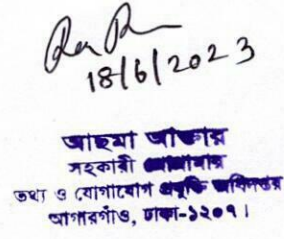 18/6/2023
আছমা আক্তার
সহকারী
তথ্য ও যোগাযোগ প্রযুক্তি অধিদপ্তর
আগারগাঁও, ঢাকা-১২০৭।